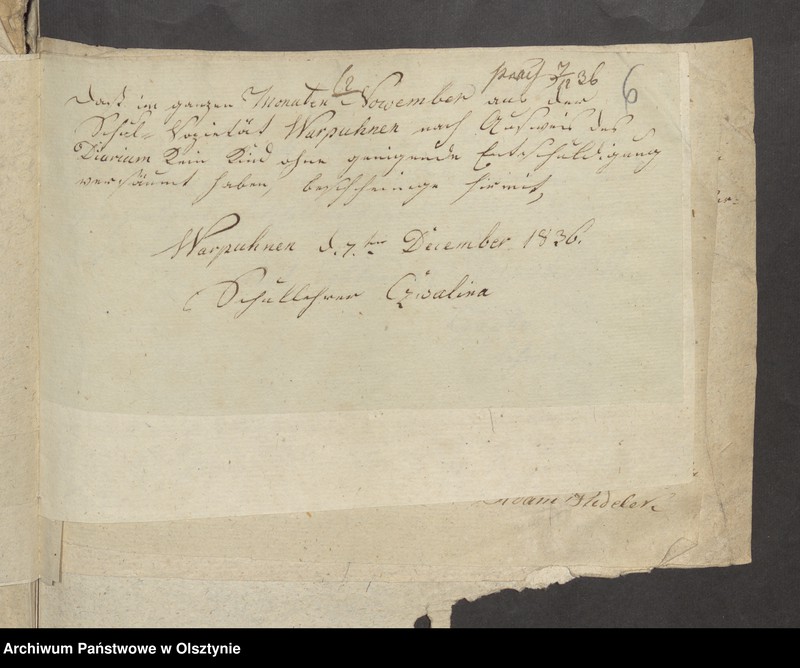 12 6
Daß im ganzen Monaten November aus der
Schul-Sozietät Warpuhnen nach Ausweis des
Diarium kein Kind ohne genigende Entschuldigung
versäumt haben, bescheinige hirmit,
Warpuhnen d. 7.ten December 1836.
Schullehrer Czwalina
Adam
Archiwum Państwowe w Olsztynie